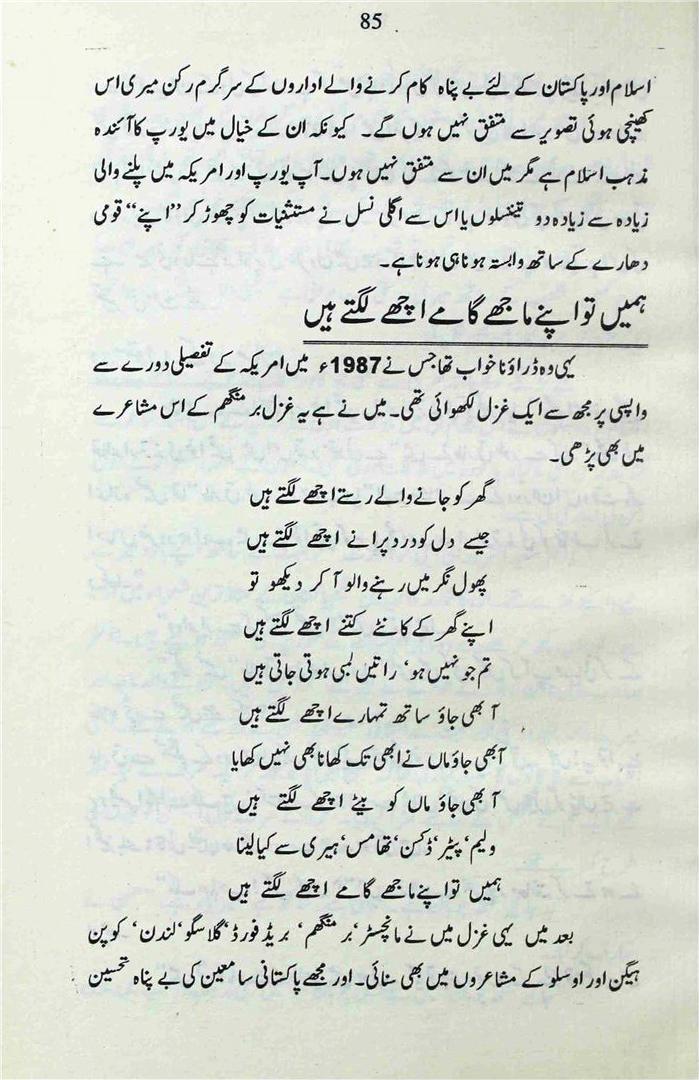 85
اسلام اور پاکستان کے لئے بے پناہ کام کرنے والے اداروں کے سرگرم رکن میری اس
کھینچی ہوئی تصویر سے متفق نہیں ہوں گے۔ کیونکہ ان کے خیال میں یورپ کا آئندہ
مذہب اسلام ہے مگر میں ان سے متفق نہیں ہوں۔ آپ یورپ اور امریکہ میں پلنے والی
زیادہ سے زیادہ دو تین نسلوں یا اس سے اگلی نسل نے مستثنیات کو چھوڑ کر ”اپنے“ قومی
دھارے کے ساتھ وابستہ ہونا ہی ہونا ہے۔
ہمیں تو اپنے ماجھے گامے اچھے لگتے ہیں
یہی وہ ڈراؤنا خواب تھا جس نے 1987ء میں امریکہ کے تفصیلی دورے سے
واپسی پر مجھ سے ایک غزل لکھوائی تھی۔ میں نے ہے یہ غزل برمنگھم کے اس مشاعرے
میں بھی پڑھی۔
گھر کو جانے والے رستے اچھے لگتے ہیں
جیسے دل کو درد پرانے اچھے لگتے ہیں
پھول نگر میں رہنے والو آ کر دیکھو تو
اپنے گھر کے کانٹے کتنے اچھے لگتے ہیں
تم جو نہیں ہو‘ راتیں لمبی ہوتی جاتی ہیں
آ بھی جاؤ ساتھ تمہارے اچھے لگتے ہیں
آ بھی جاؤ ماں نے ابھی تک کھانا بھی نہیں کھایا
آ بھی جاؤ ماں کو بیٹے اچھے لگتے ہیں
ولیم‘ پیٹر‘ ڈکسن‘ تھامس‘ ہیری سے کیا لینا
ہمیں تو اپنے ماجھے گامے اچھے لگتے ہیں
بعد میں یہی غزل میں نے مانچسٹر‘ برمنگھم‘ بریڈ فورڈ‘ گلاسگو‘ لندن‘ کوپن
ہیگن اور اوسلو کے مشاعروں میں بھی سنائی۔ اور مجھے پاکستانی سامعین کی بے پناہ تحسین